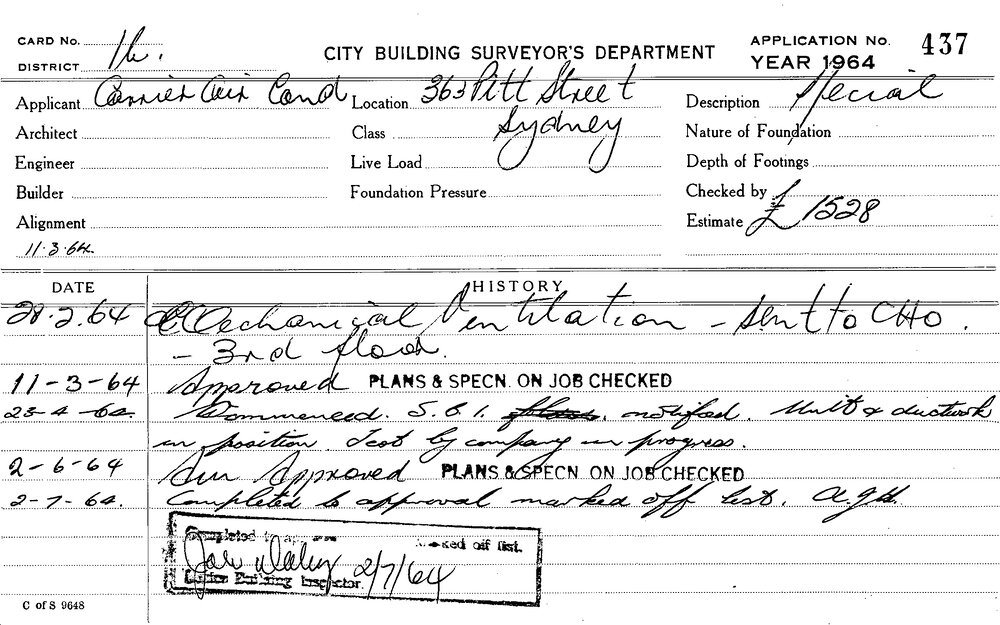 CARD No. 1h.
DISTRICT
CITY BUILDING SURVEYOR'S DEPARTMENT
APPLICATION No. 437
YEAR 1964
Applicant Carrier Air Cond Location 363 Pitt Street Description Special
Architect Class Sydney Nature of Foundation
Engineer Live Load Depth of Footings
Builder Foundation Pressure Checked by
Alignment Estimate £ 1528
11.3.64.
DATE HISTORY
28.2.64 Mechanical Ventilation - sent to CHO.
- 3rd floor.
11-3-64 Approved PLANS & SPECN. ON JOB CHECKED
23-4-64. Commenced. S.B.I. notified. Unit & ductwork
in position. Test by company in progress.
2-6-64 Approved PLANS & SPECN. ON JOB CHECKED
2-7-64. Completed to approval marked off list.
Completed to marked off list.
2/7/64
Building Inspector.
C of S 9648